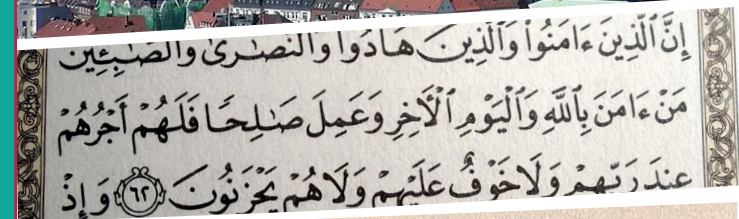 إِنَّ ٱلَّذِينَ ءَامَنُوا۟ وَٱلَّذِينَ هَادُوا۟ وَٱلنَّصَـٰرَىٰ وَٱلصَّـٰبِـِٔينَ
مَنْ ءَامَنَ بِٱللَّهِ وَٱلْيَوْمِ ٱلْـَٔاخِرِ وَعَمِلَ صَـٰلِحًا فَلَهُمْ أَجْرُهُمْ
عِندَ رَبِّهِمْ وَلَا خَوْفٌ عَلَيْهِمْ وَلَا هُمْ يَحْزَنُونَ ٦٢ وَإِذْ